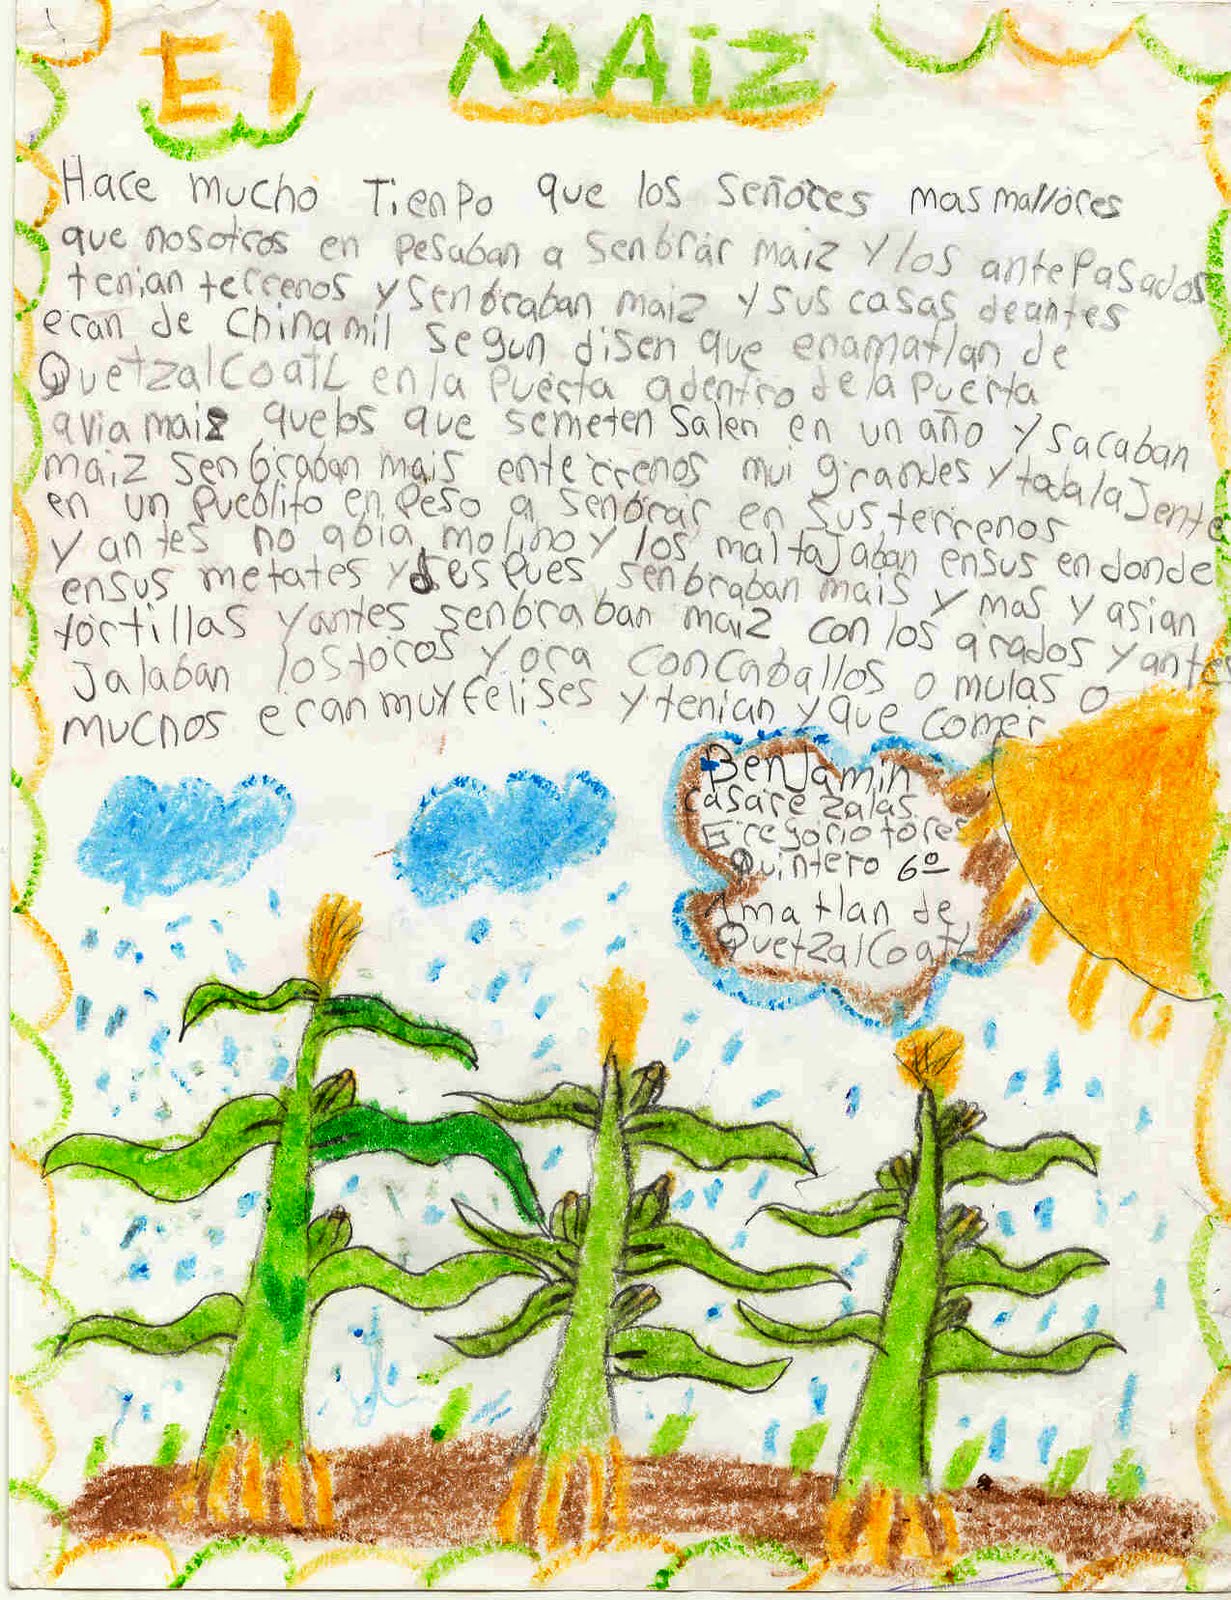 El MAiZ
Hace mucho Tienpo que los señores mas mallores
que nosotros en pesaban a senbrar maiz y los antePasados
tenian terrenos y senbraban maiz y sus casas deantes
eran de chinamil segun disen que enamatlan de
QuetzalCoatL en la puerta adentro de la puerta
avia maiz quelos que semeten salen en un año y sacaban
maiz senbraban mais enterrenos mui grandes y toda la Jente
en un Pueblito en peso a senbrar en sus terrenos
y antes no abia molino y los maltaJaban ensus en donde
ensus metates y despues senbraban mais y mas y asian
tortillas yantes senbraban maiz con los arados y antes
Jalaban los toros y ora con caballos o mulas o
muchos eran muy felises y tenian y que comer
BenJamin
casarezalas
Gregorio tores
Quintero 6º
Amatlan de
QuetzalCoatL